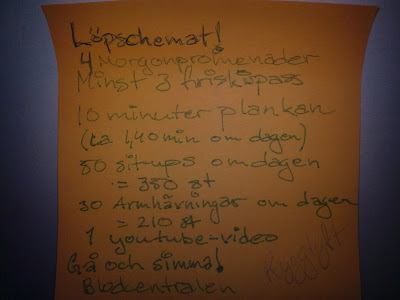 Löpschemat!
4 Morgonpromenader
Minst 3 friskispass
10 minuter plankan
(ca 1,40 min om dagen)
50 sit-ups om dagen
= 350 st
30 Armhävningar om dagen
= 210 st
1 youtube-video
Gå och simma!
Blodcentralen
Rygglyft